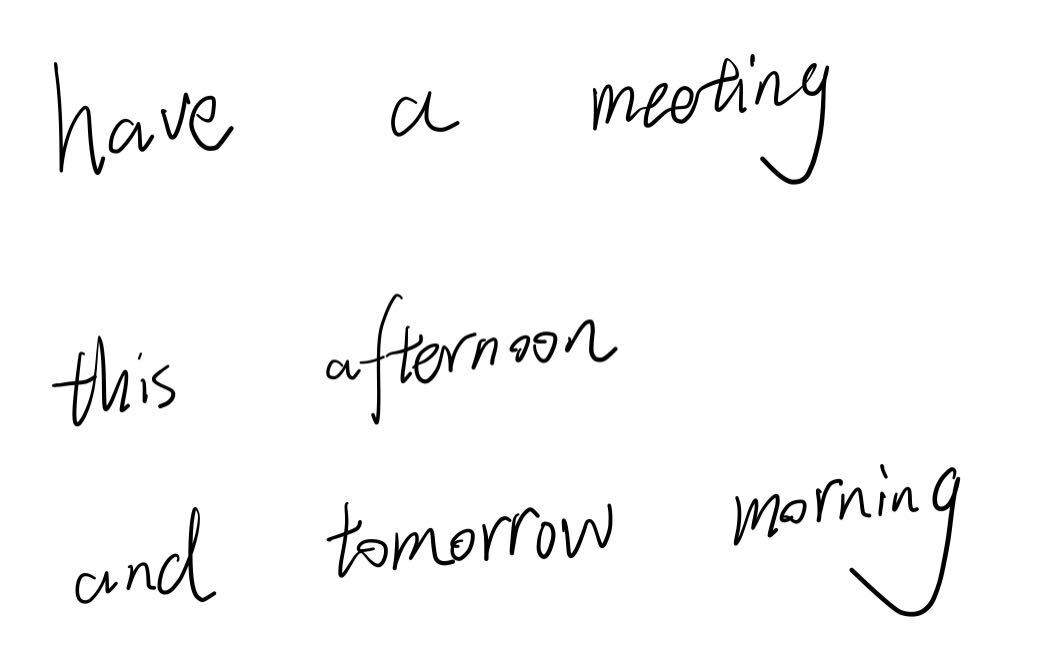 have a meeting
this afternoon
and tomorrow morning